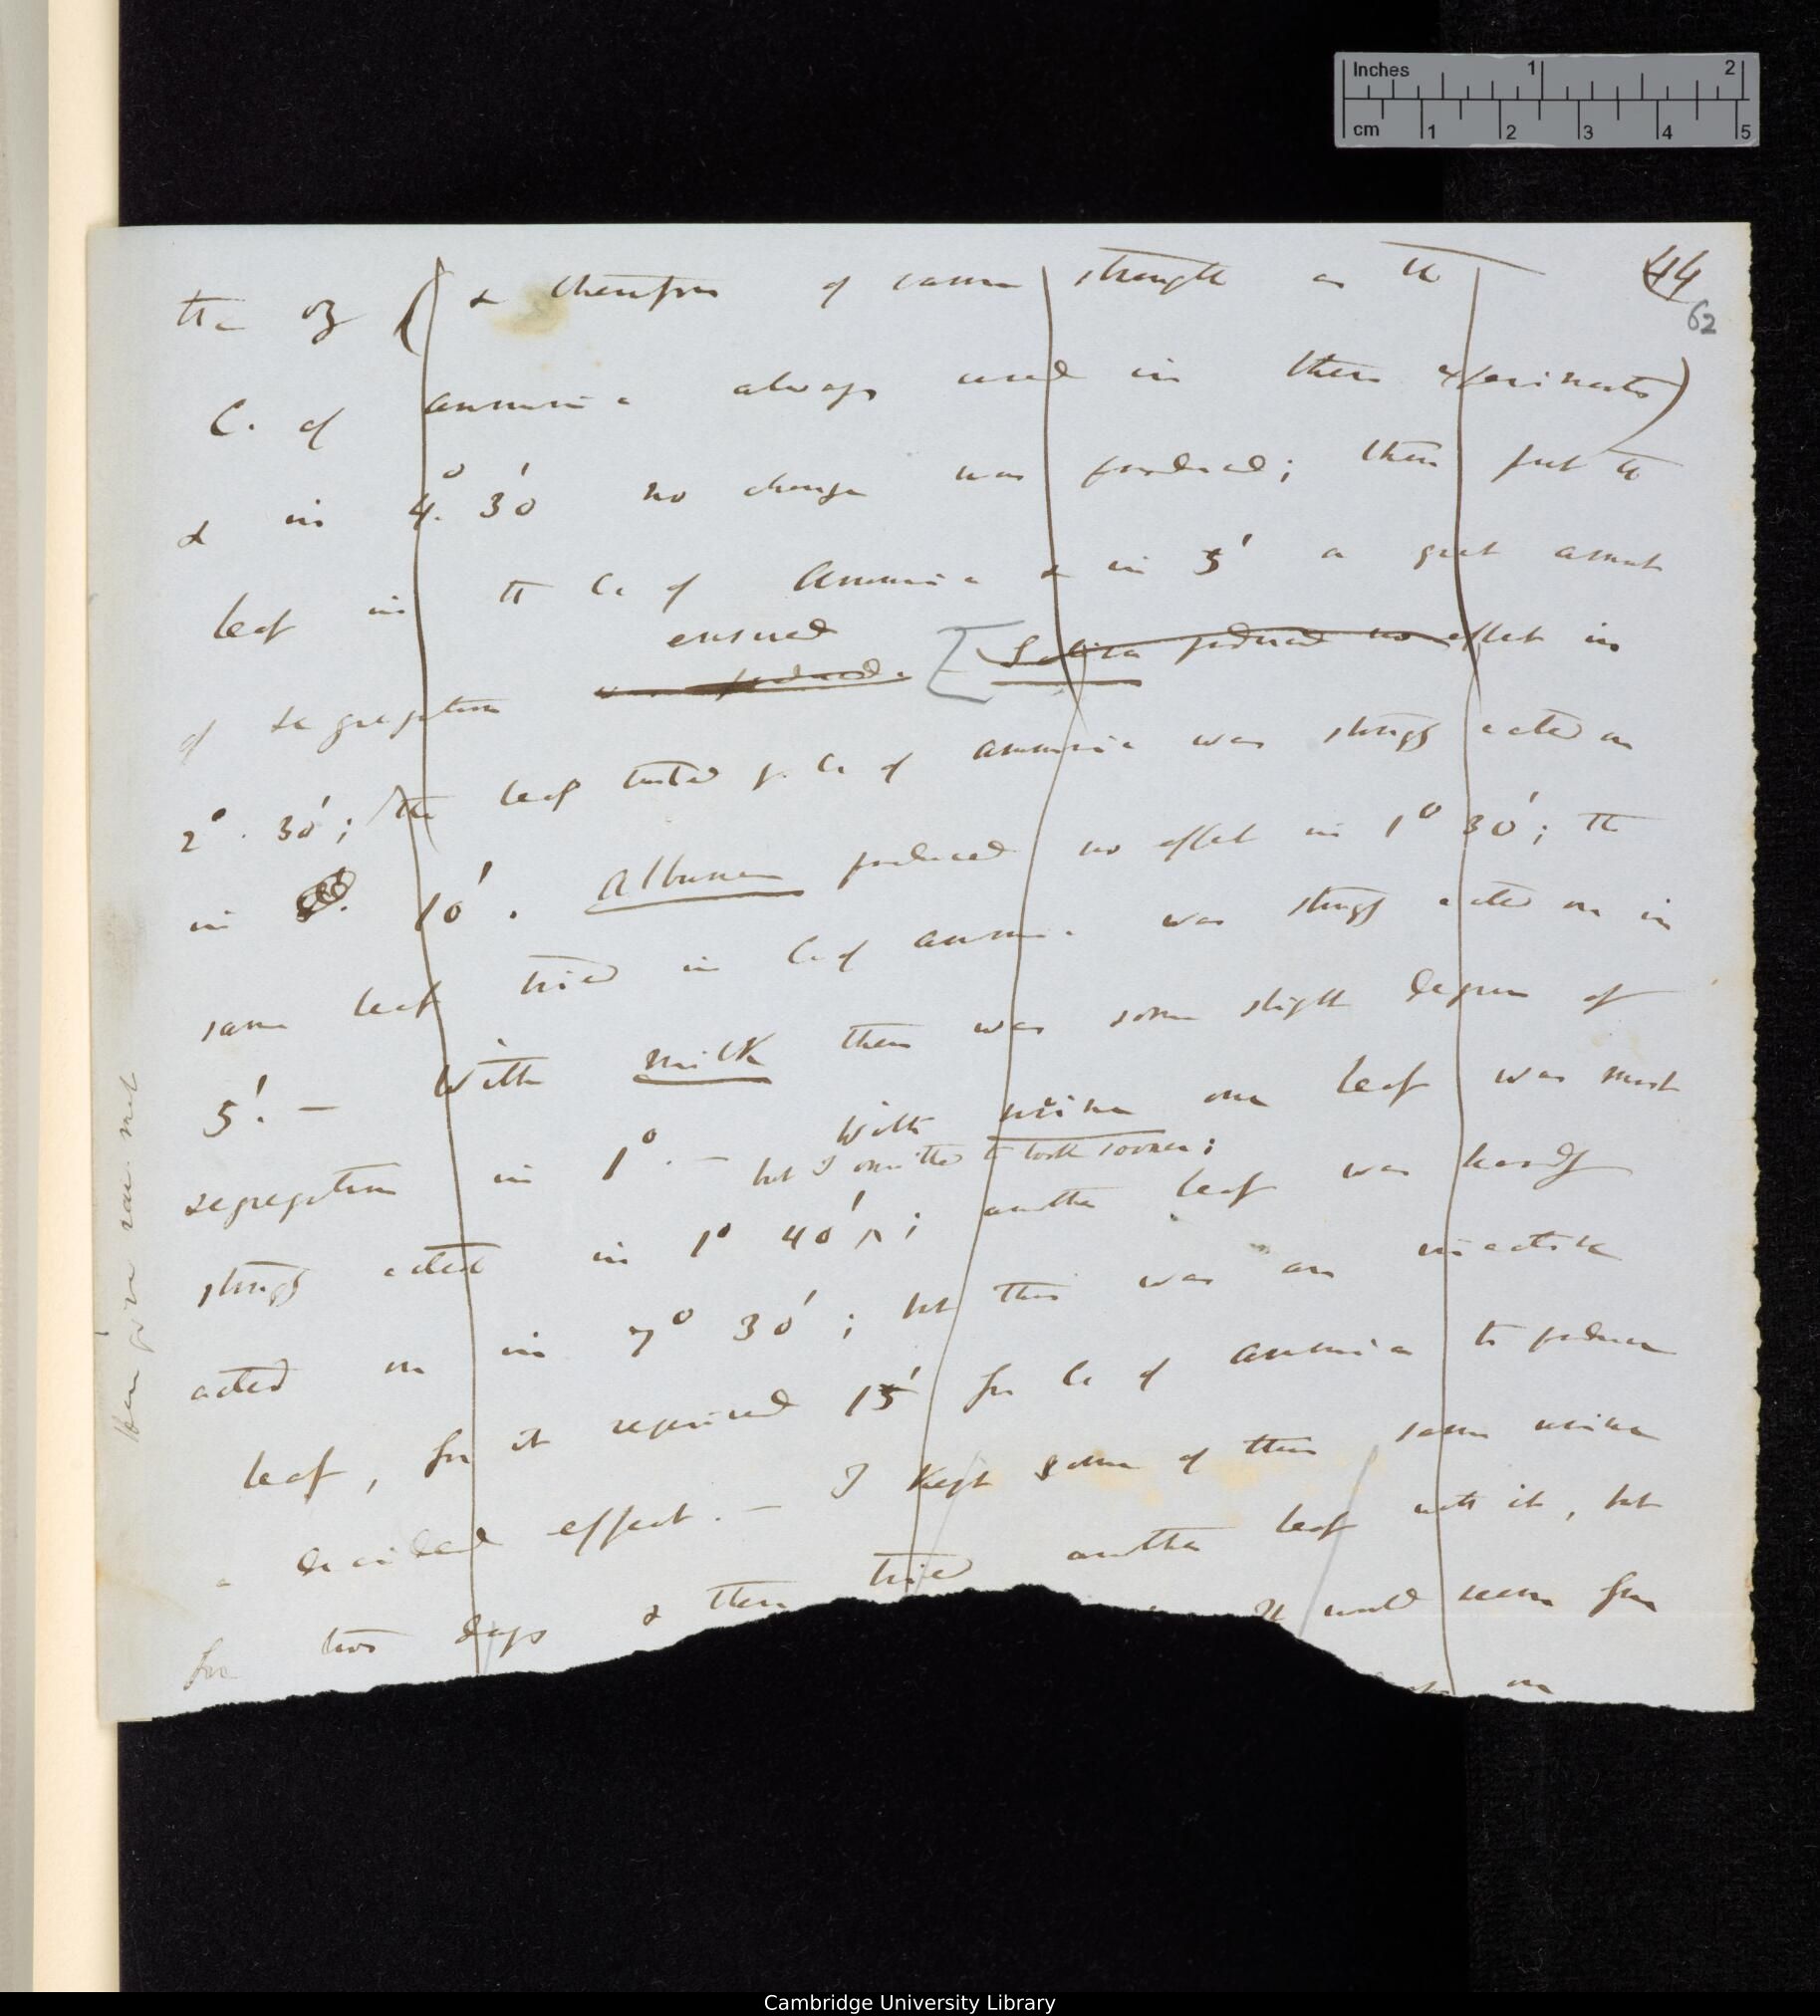 Inches 1 2
cm 1 2 3 4 5
44
62
the oz (& therefore of same strength as the
C. of ammonia always used in these experiments)
& in 4.° 30' no change was produced; then put the
leaf in the C. of Ammonia & in 5' a great amount
ensued
of segregation was produced. [Saliva produced no effect in
2°. 30'; the leaf tested by C. of ammonia was strongly acted on
in 10'. Albumen produced no effect in 1° 30'; the
same leaf tried in C. of ammonia was strongly acted on in
5'. — With milk there was some slight degree of
segregation in 1°. — With urine one leaf was most
but I omitted to look sooner;
strongly acted in 1° 40'^; another leaf was hardly
acted on in 7° 30'; but this was an inactive
leaf, for it required 15' for C. of ammonia to produce
a decided effect. — I kept some of this same urine
for two days & then tried another leaf with it, but
It would seem from
on
raw meat
Cambridge University Library